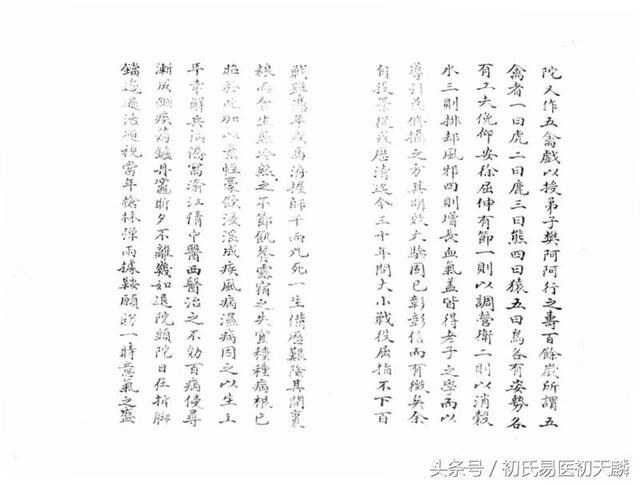 陀又作五禽戲以授弟子樊阿阿行之壽百餘歲所謂五
禽者一曰虎二曰鹿三曰熊四曰猿五曰鳥各有姿勢各
有工夫俛仰安徐屈伸有節一則以調營衛二則以消穀
水三則排却風邪四則增長血氣蓋皆得老子之學而以
導引為修攝之方其明效大驗固已彰彰信而有徵矣余
自投筆從戎歷清迄今三十年間大小戰役屈指不下百
戰雖馮 戎馬 握節千而九死一生備歷艱險其間裏
根而合生熊冷熱之不節飢餐露宿之失宜種種病根已
於此加以素性豪飲浸淫成疾風病濕病因之以生上
年幸解兵 僑寓滬江倩中醫西醫治之不効百病侵尋
漸成痼疾葯鑪丹竈朝夕不離幾如退院頭陀日在折脚
鐺邊過活迴視當年槍林彈雨據鞍顧盼一時意氣之盛
头条号/初氏易医初天麟